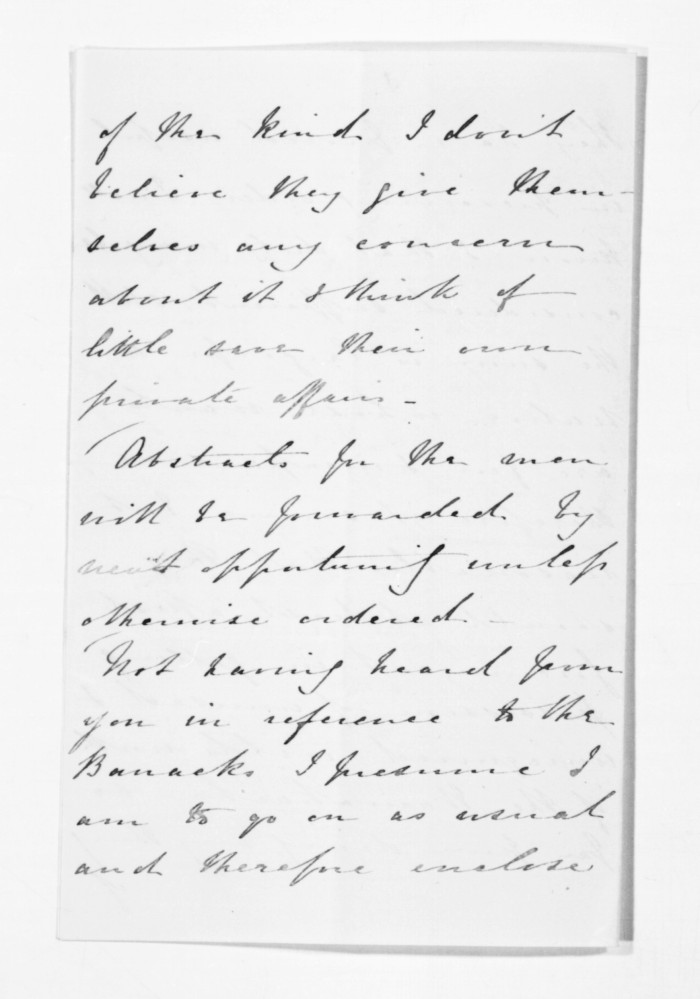 of the kind I don't
believe they give them-
selves any concern
about it & think of
little save their own
private affairs -
Abstracts for the men
will be forwarded by
next opportunity unless
otherwise ordered -
Not having heard from
you in reference to the
Barracks I presume I
am to go on as usual
and therefore enclose